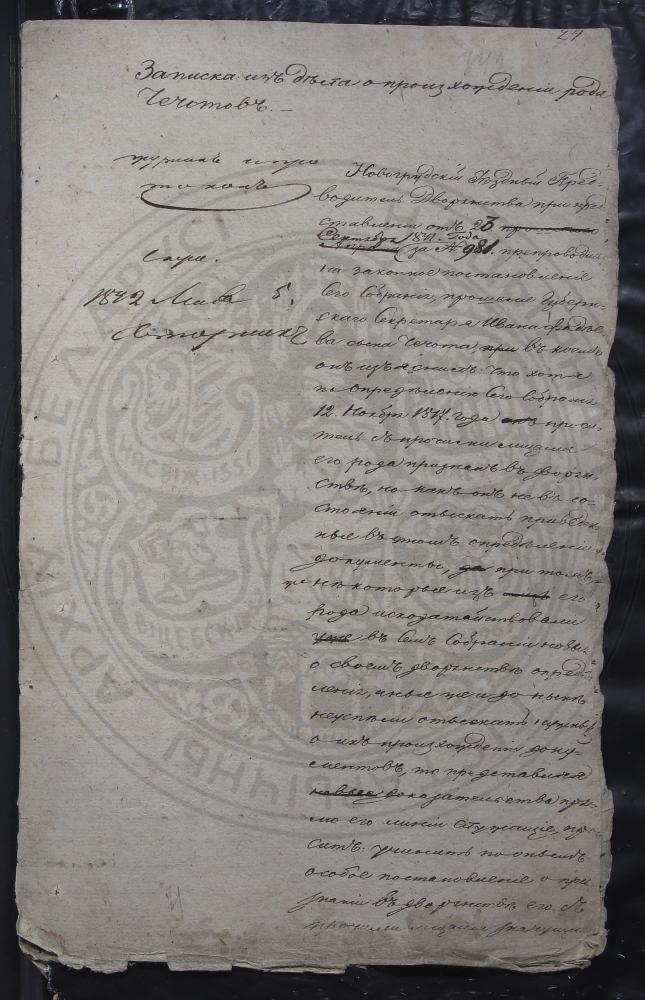 29
Записка изъ дѣла о происхожденіи рода
Чечотовъ. —
журналъ и про
токолъ
Новогрудскій Уѣздный Пред-
водитель Дворянства при пред-
ставленіи отъ 23
Сентября 1841 года
за № 981. препроводилъ
на законное постановленіе
сего Собранія, прошеніе Губерн-
скаго Секретаря Ивана Фадѣе-
ва сына Чечота, при въ коемъ
онъ изъяснилъ: что хотя
по опредѣленію сего Собранія
12. Ноябр 1817. года
съ прочими лицами
его рода признанъ въ дворян-
ствѣ, но какъ онъ не въ со-
стояніи отыскать приведен-
ные въ томъ опредѣленіи
документы, да при томъ
же некоторые изъ его
рода исходатайствовали
уже въ семъ Собраніи новыя
о своемъ дворянствѣ опредѣ-
ленія, иные же и до нынѣ
неуспѣли отыскать нужныхъ
о ихъ происхожденіи доку-
ментовъ, то представляя
новые доказательства пря-
мо его линіи служащіе, про-
ситъ: учинить по онымъ
особое постановленіе о при-
знаніи въ дворянствѣ его съ
прочими лицами
1842 Маія 5.
АРХІЎ БЕЛАРУСІ
НАСВІЖ
ВІЦЕБСК